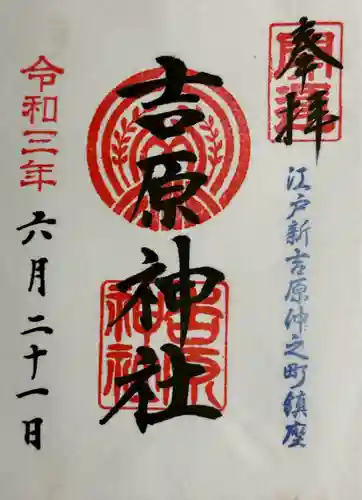 奉拝
江戸新吉原仲之町鎮座
吉原神社
吉原神社
令和三年
六月二十一日